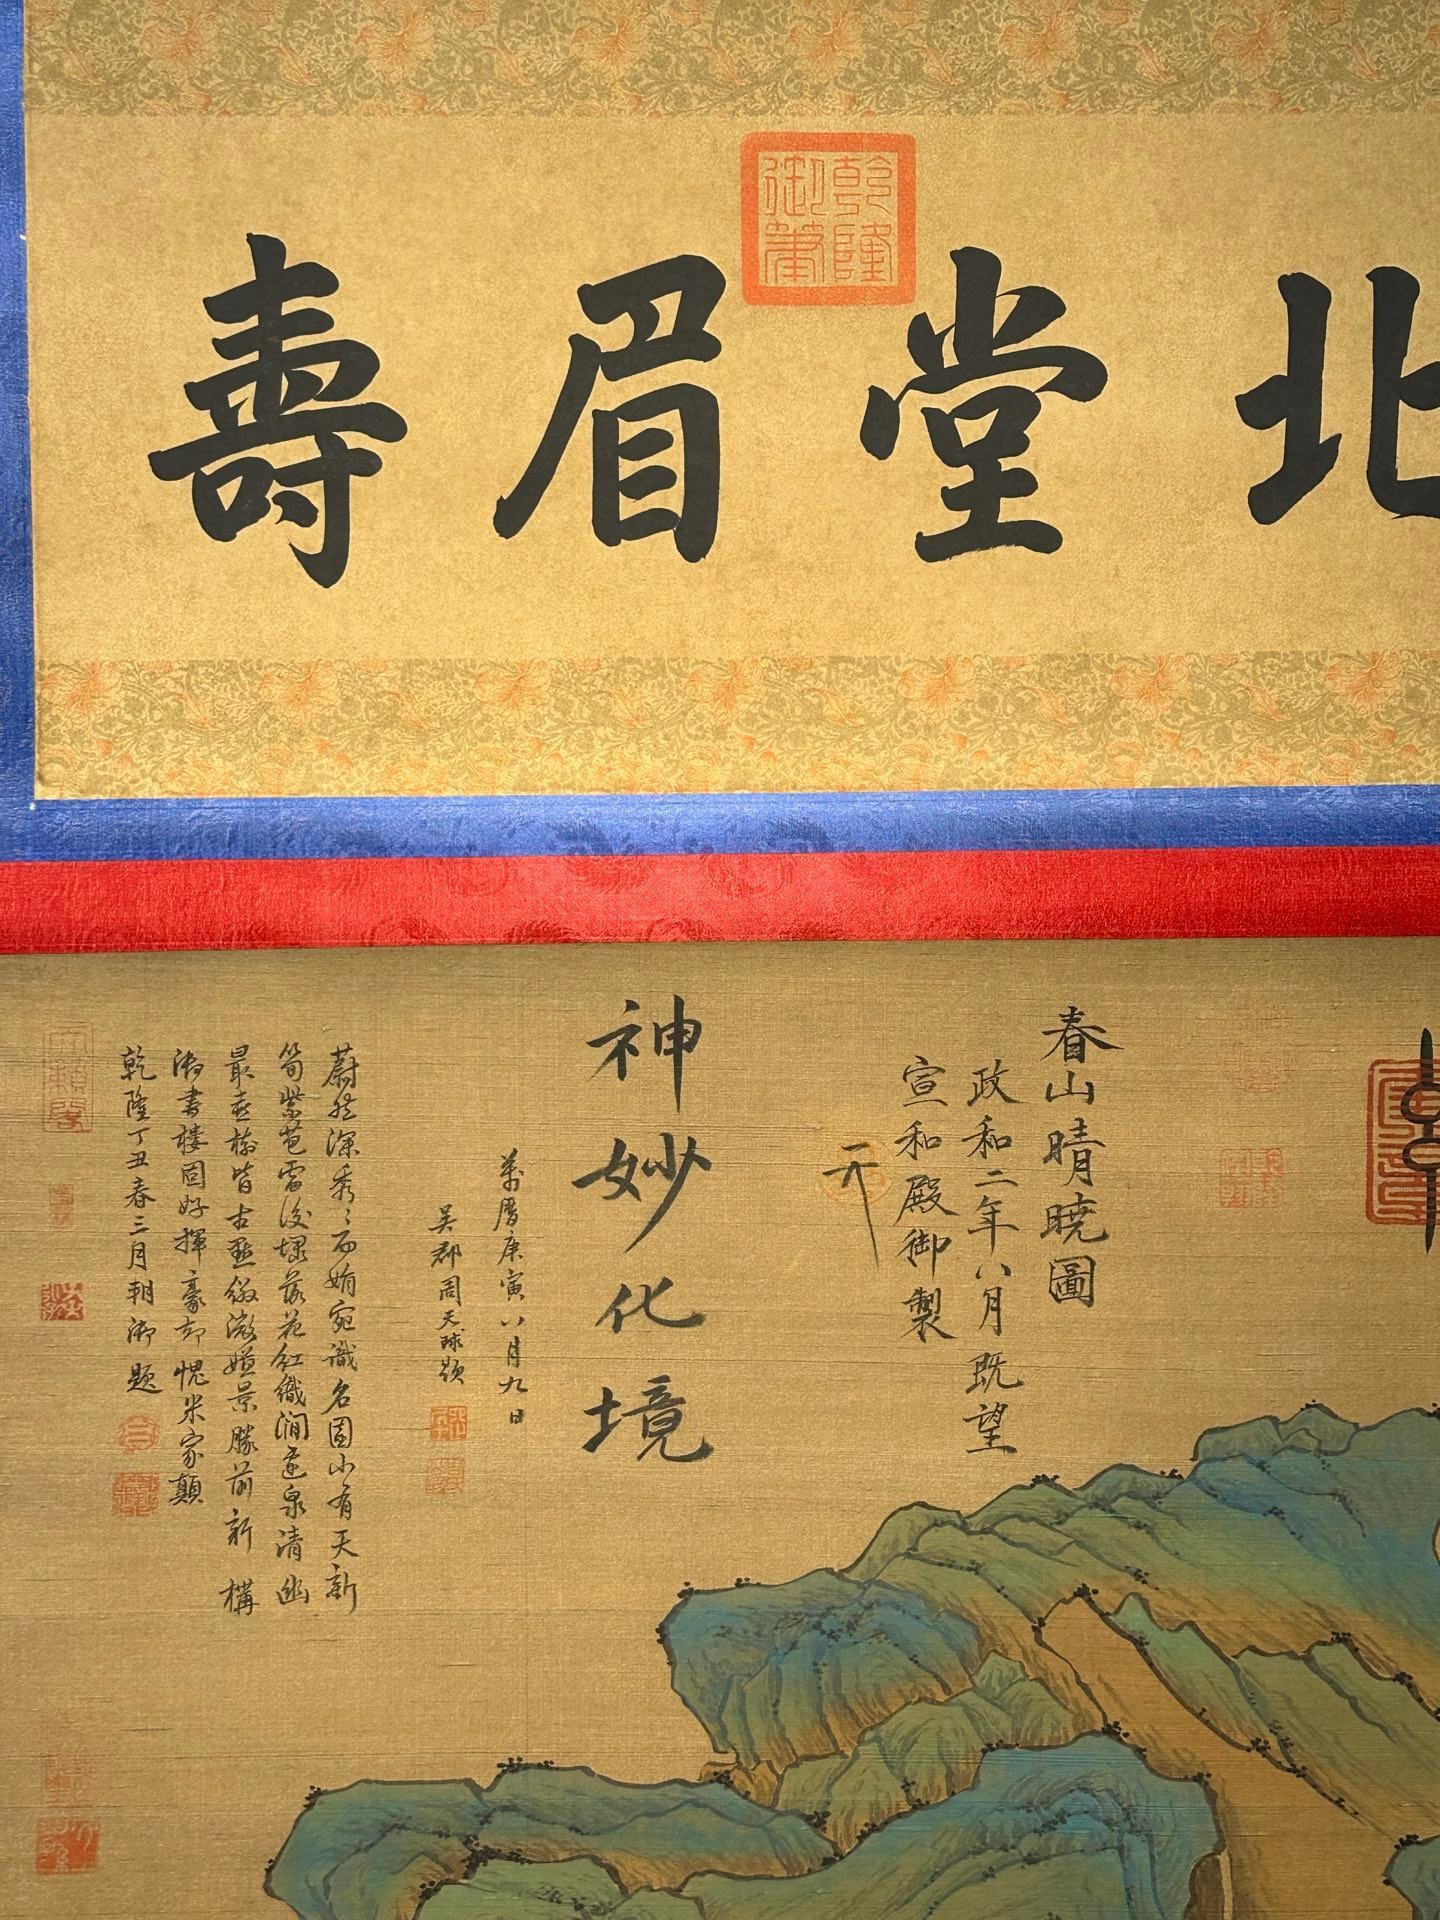 北堂眉壽
乾隆御筆
春山晴曉圖
政和二年八月既望
宣和殿御製
神妙化境
萬曆庚寅八月九日
吳郡周天球題
蔚然深秀秀而娟宛識名園小有天新
筍紫苞雷後堁落花紅織澗邊泉清幽
最喜樹皆古點綴微嫌景勝前新構
御書樓固好揮豪却愧米家顛
乾隆丁丑春三月朔御題